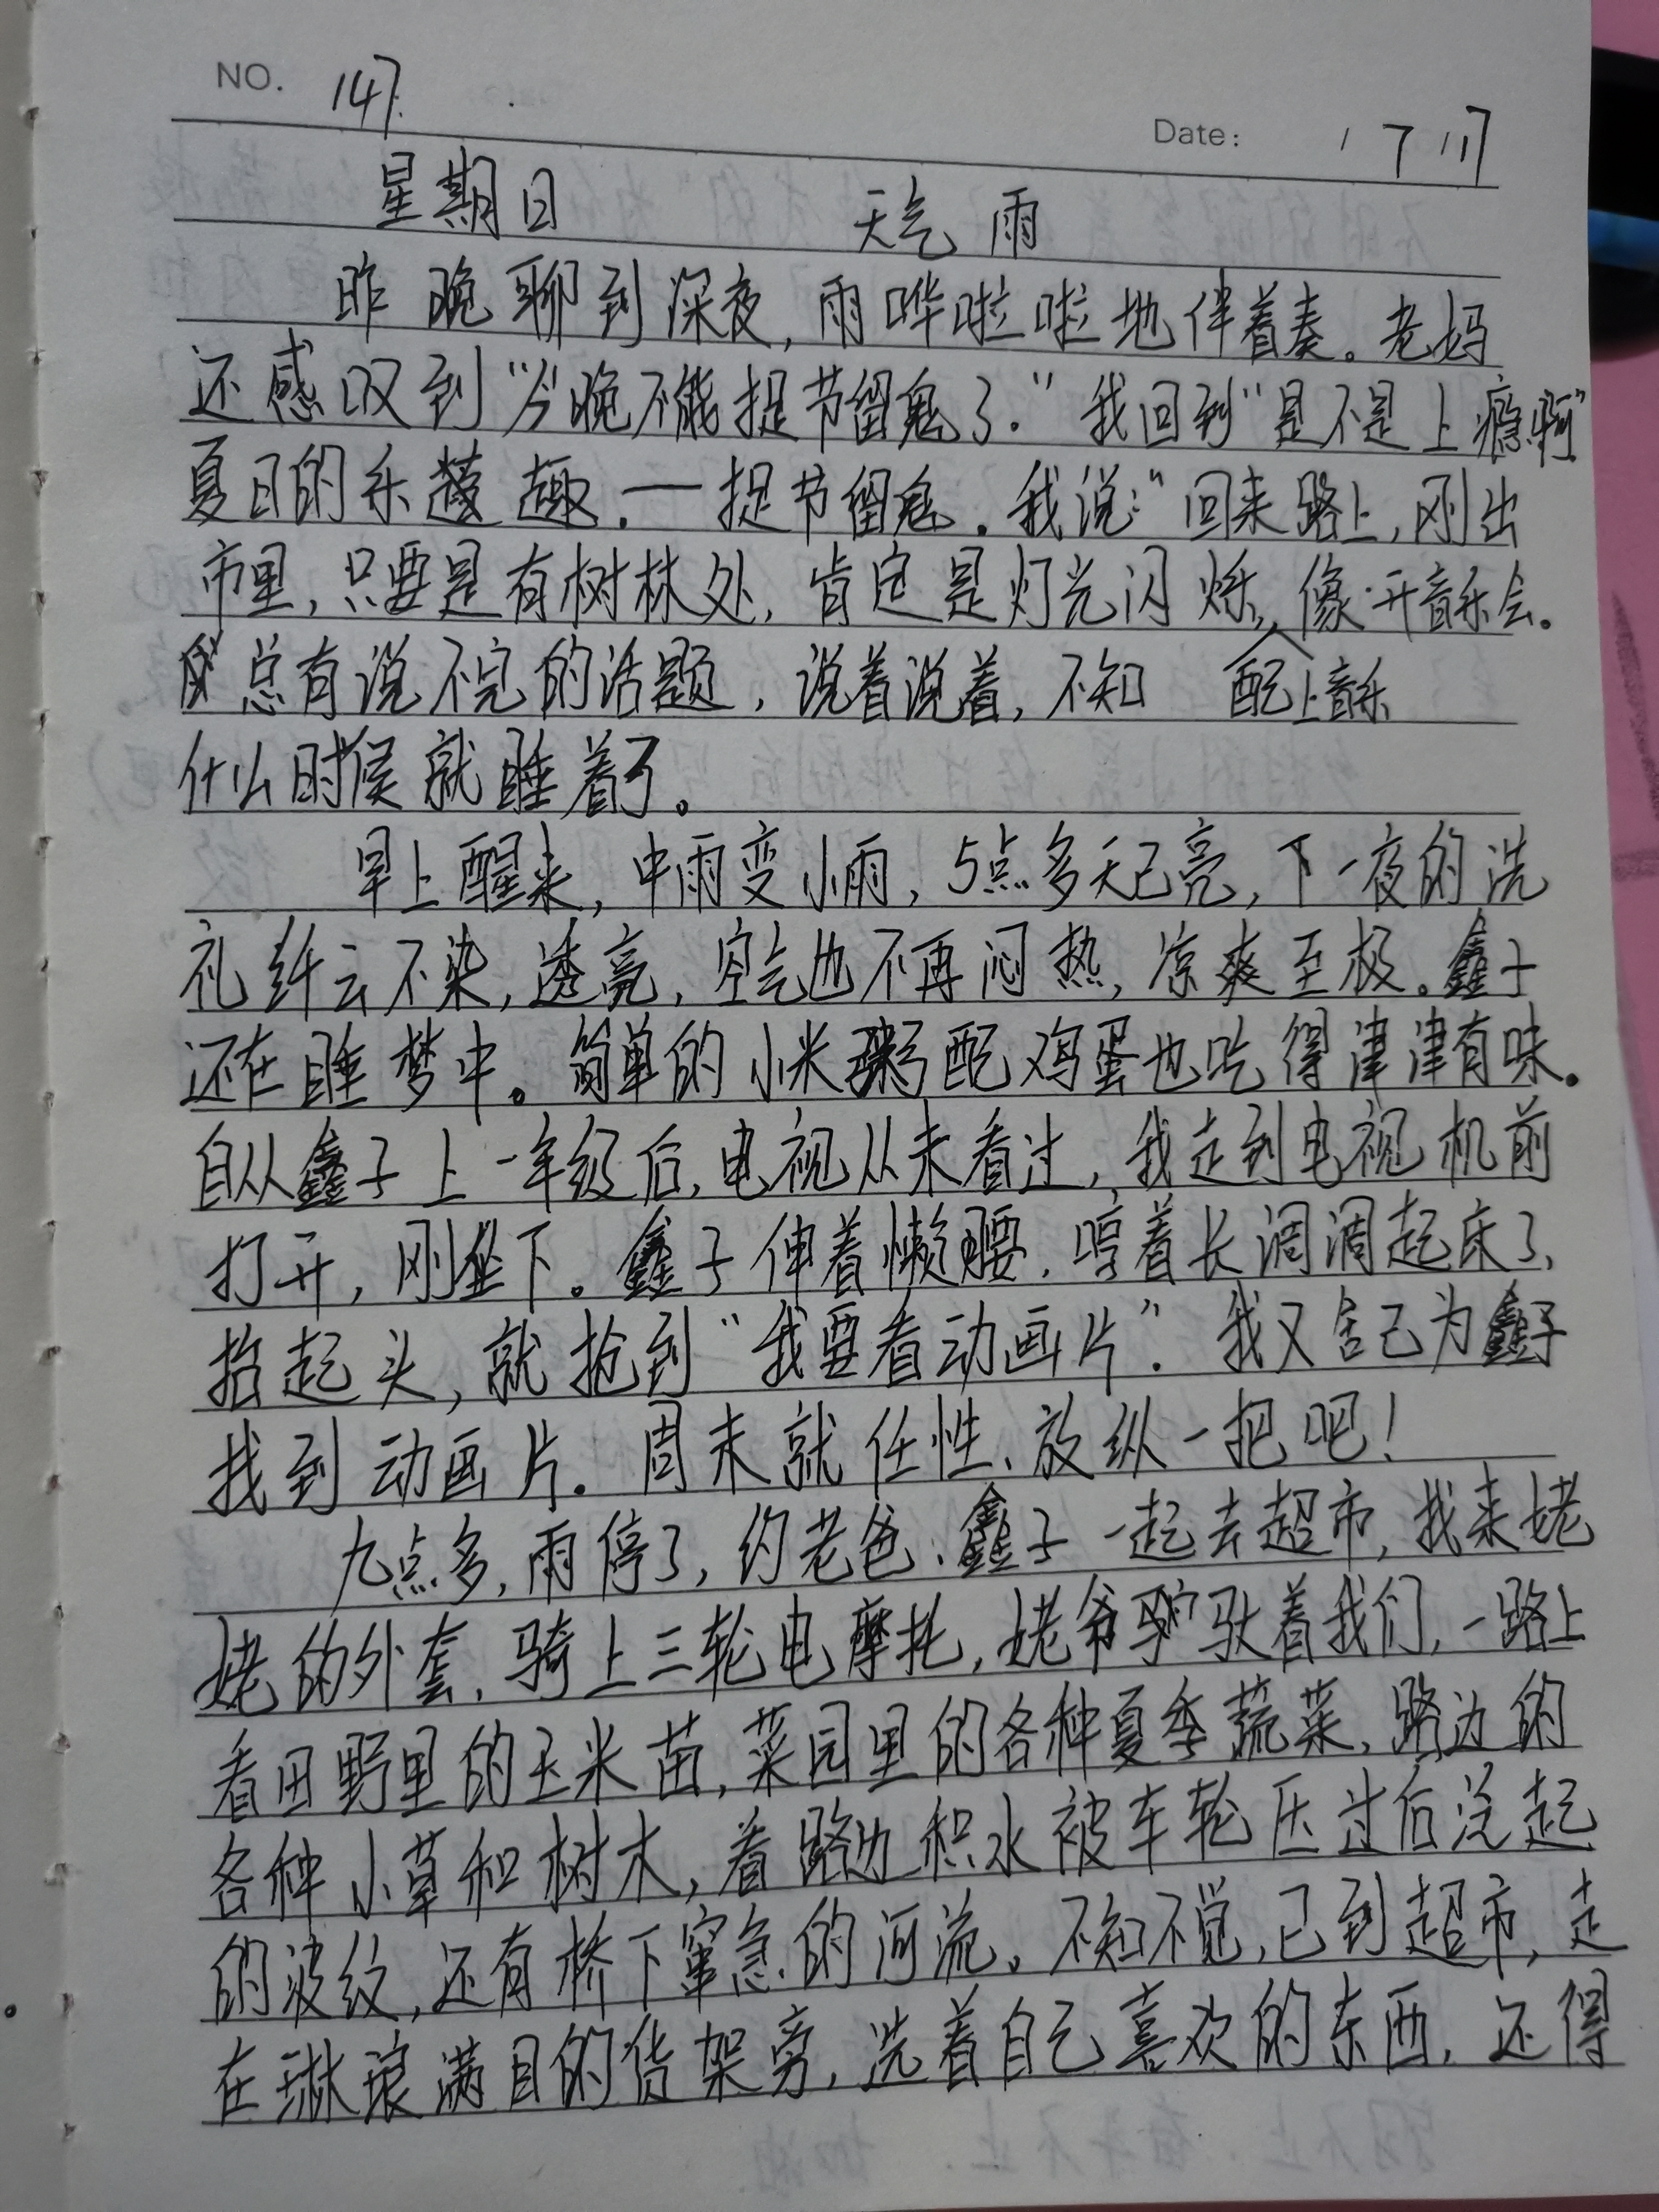 NO. 147.
Date: 1 7 11
星期日 天气 雨
昨晚聊到深夜,雨哗啦啦地伴着奏。老妈
还感叹到“今晚不能捉节留鬼了.”我回到“是不是上瘾啊”
夏日的乐趣.一捉节留鬼.我说:“回来路上,刚出
市里,只要是有树林处,肯定是灯光闪烁,像开音乐会。
总有说不完的话题,说着说着,不知 配上音乐
什么时候就睡着了。
早上醒来,中雨变小雨,5点多天已亮,下一夜的洗
礼纤云不染,透亮,空气也不再闷热,凉爽至极。鑫子
还在睡梦中。简单的小米粥配鸡蛋也吃得津津有味。
自从鑫子上一年级后,电视从未看过,我走到电视机前
打开,刚坐下。鑫子伸着懒腰,哼着长调调起床了,
抬起头,就抢到“我要看动画片”.我又舍己为鑫子
找到动画片.周末就任性、放纵一把吧!
九点多,雨停了,约老爸、鑫子一起去超市,找来姥
姥的外套,骑上三轮电摩托,姥爷驮着我们,一路上
看田野里的玉米苗,菜园里的各种夏季蔬菜,路边的
各种小草和树木,看路边积水被车轮压过后泛起
的波纹,还有桥下窜急的河流。不知不觉,已到超市,走
在琳琅满目的货架旁,洗着自己喜欢的东西,还得